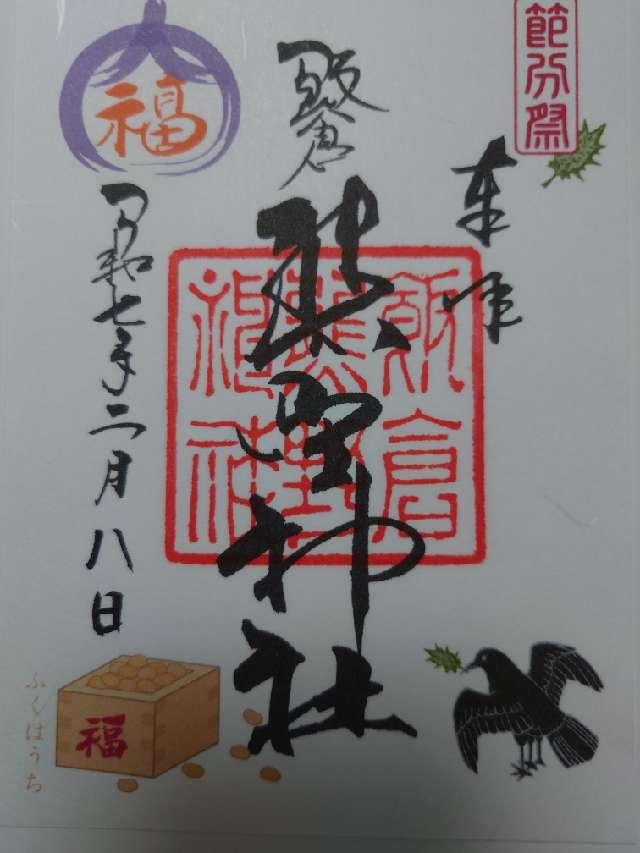 節分祭
奉拝
飯倉
熊野神社
飯倉
熊野
神社
福
令和七年二月八日
福
ふくはうち